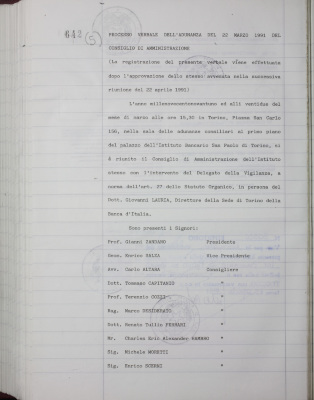 642 (5)
PROCESSO VERBALE DELL'ADUNANZA DEL 22 MARZO 1991 DEL
CONSIGLIO DI AMMINISTRAZIONE
(La registrazione del presente verbale viene effettuata
dopo l'approvazione dello stesso avvenuta nella successiva
riunione del 22 aprile 1991)
L'anno millenovecentonovantuno ed alli ventidue del
mese di marzo alle ore 10,30 in Torino, Piazza San Carlo
156, nella sala delle adunanze consiliari al primo piano
del palazzo dell'Istituto Bancario San Paolo di Torino, si
è riunito il Consiglio di Amministrazione dell'Istituto
stesso con l'intervento del Delegato della Vigilanza, a
norma dell'art. 27 dello Statuto Organico, in persona del
Dott. Giovanni LAURIA, Direttore della Sede di Torino della
Banca d'Italia.
Sono presenti i Signori:
Prof. Gianni ZANDANO Presidente
Geom. Enrico SALZA Vice Presidente
Avv. Carlo ALTARA Consigliere
Dott. Tommaso CAPITANIO "
Prof. Terenzio COZZI "
Rag. Marco DESIDERATO "
Dott. Renato Tullio FERRARI "
Mr. Charles Eric Alexander HAMBRO "
Sig. Michele MORETTI "
Sig. Enrico